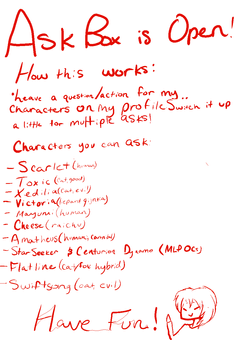 Ask Box is Open!
How this works:
*leave a question/action for my..
Characters on my profile Switch it up
a little for multiple asks!
Characters you can ask:
- Scarlet (human)
- Toxic (cat, good)
- Xedilia (cat, evil)
- Victoria (leopard guinea)
- Mangumi (human)
- Cheese (raichu)
- Amatheus (human, cannibal)
- Star Seeker & Centurion Dynamo (MLP OCs)
- Flatline (cat/fox hybrid)
- Swiftsong (cat, evil)
Have Fun!